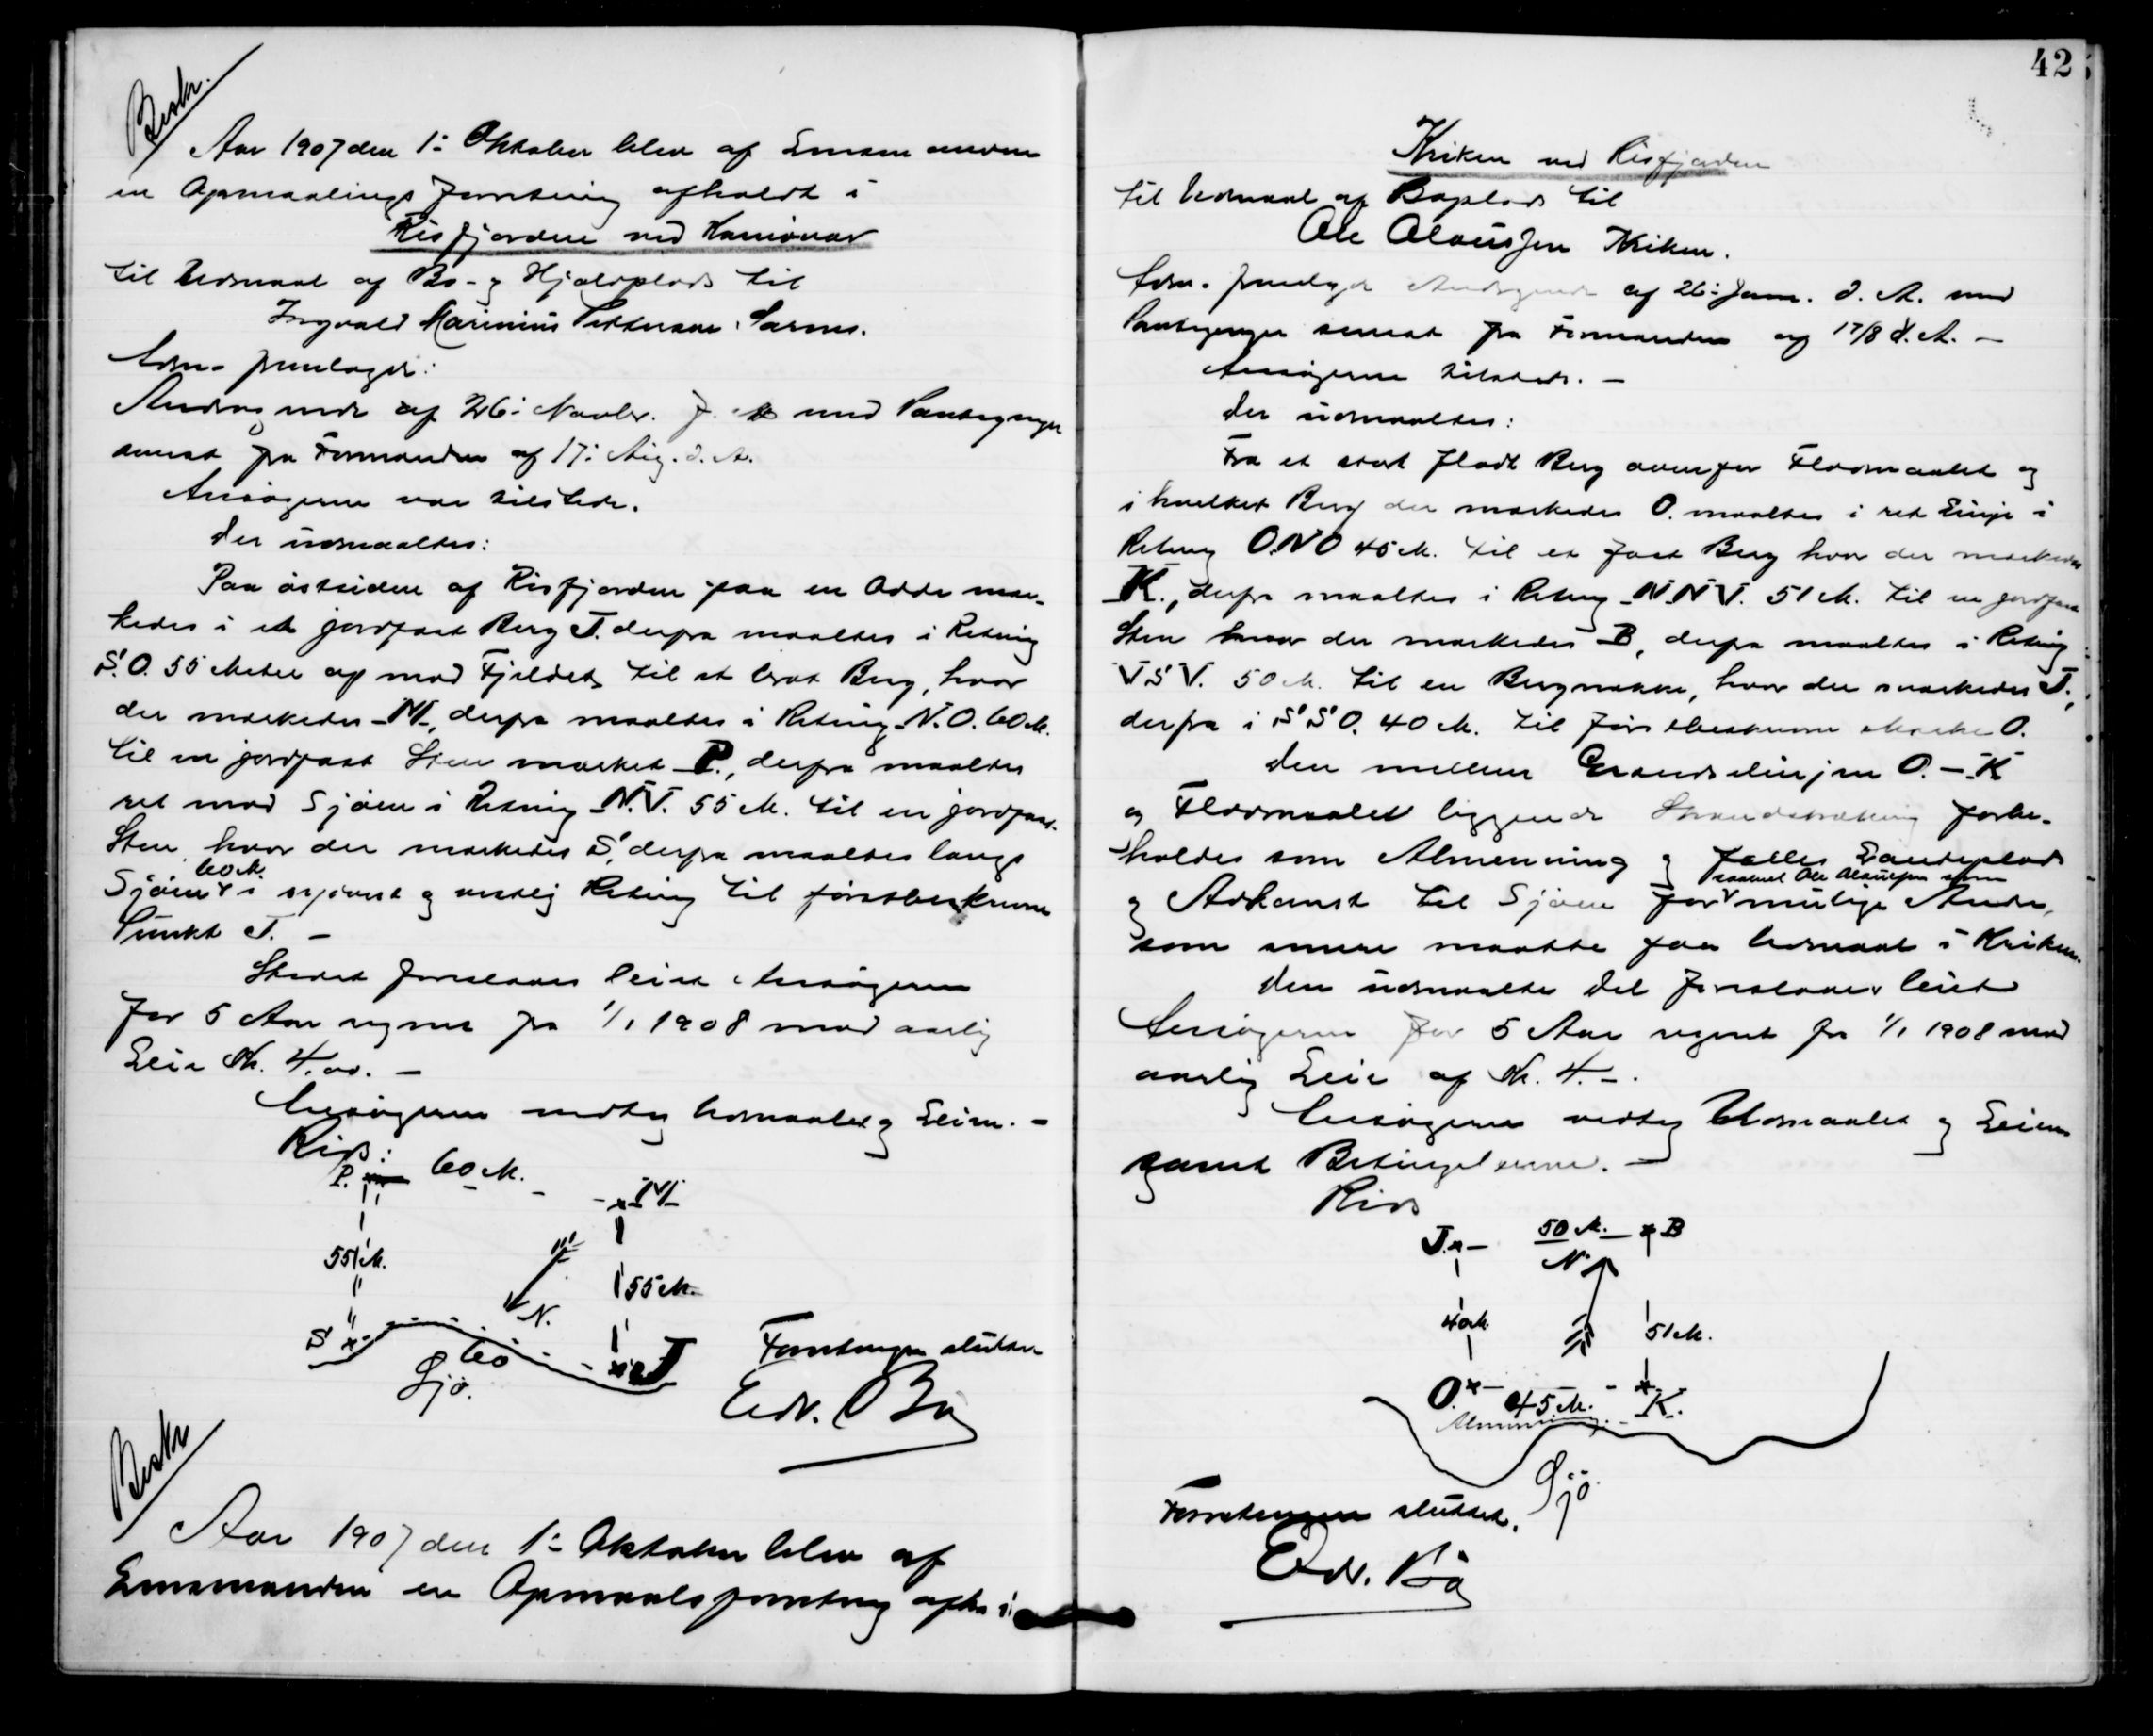 Beskr.
Aar 1907 den 1ː Oktober blev af Lensmanden
en Opmaalings forretning afholdt i
Risfjorden ved Hamövær
til Udmaal af Bo- og Hjeldplads til
Ingvald Marinius Pettersen
Adm. fremlagde:
Andragende af 26ː Novbr. f. A. med Paategninger
senest fra Formanden af 17ː Aug. d. A.
Ansögeren var tilstede.
Der udmaaltes:
Paa östsiden af Risfjorden paa en Odde mær-
kedes i et jordfast Berg J. derfra maaltes i Retning
S.O. 55 Meter op mod Fjeldet til et brat Berg, hvor
der mærkedes M, derfra maaltes i Retning N.O. 60 M.
til en jordfast Sten mærket P., derfra maaltes
ret mod Sjöen i Retning N.V. 55 M. til en jordfast
Sten, hvor der mærkedes S, derfra maaltes langs
60 M.
Sjöen i sydvest og vestlig Retning til förstbeskrevne
Punkt J. –
Stedet foreslaaes leiet Ansögeren
for 5 Aar regnet fra 1/1 1908 mod aarlig
Leie Kr. 4.00. –
Ansögeren vedtog Udmaalet og Leien. –
Rids:
P. 60 M. M
55 M.
N.
55 M.
S 60 J
Sjö.
Forretningen sluttet
Edv. Bö
Beskr
Aar 1907 den 1ː Oktober blev af
Lensmanden en Opmaalsforretning afh. i
42
Kriken ved Risfjorden
til Udmaal af Boplads til
Ole Olausen Kriken.
Adm. fremlagde Andragende af 26ː Janr. d. A. med
Paategninger senest fra Formanden af 17/8 d. A. –
Ansögeren tilstede. –
Der udmaaltes:
Fra et stort fladt Berg ovenfor Flodmaalet og
i hvilket Berg der mærkedes O. maaltes i ret Linje i
Retning O.N.O 45 M. til et fast Berg hvor der mærkedes
K., derfra maaltes i Retning N.N.V. 51 M. til en jordfast
Sten hvor der mærkedes B, derfra maaltes i Retning
V S V. 50 M. til en Bergnakke, hvor der mærkedes J.,
derfra i S S O. 40 M. til först beskrevne Mærke O.
Den mellem Grændselinjen O. – K
og Flodmaalet liggende Strandstrækning forbe-
holdes som Almenning og fælles Landeplads
saavel Ole Olausen som
og Adkomst til Sjöen for mulige Andre,
som senere maatte faa Udmaal i Kriken.
Den udmaalte Del foreslaaes leiet
Ansögeren for 5 Aar regnet fra 1/1 1908 mod
aarlig Leie af Kr. 4. –.
Ansögeren vedtog Udmaalet og Leien
samt Betingelserne. –
Rids
J. 50 M. B
N.
40 M.
51 M.
O. 45 M. K.
Almenning.
Sjö.
Forretningen sluttet.
Edv. Bö